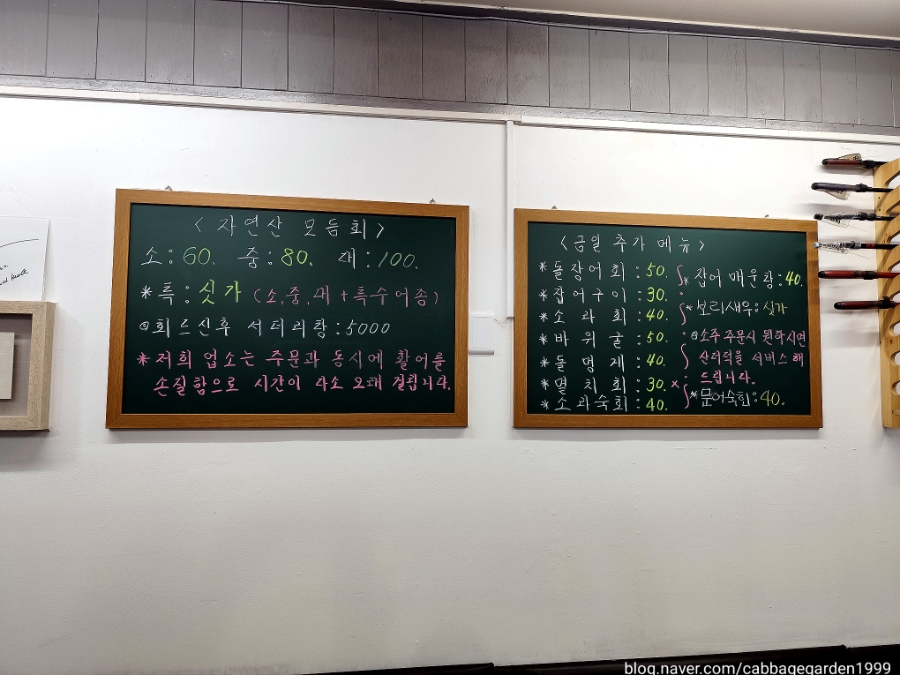 < 자연산 모듬회 >
소:60. 중:80. 대:100.
*특:싯가 (소,중,대 + 특수어종)
◎회드신후 서더리탕:5000
*저희 업소는 주문과 동시에 활어를
손질함으로 시간이 다소 오래 걸립니다.
<금일 추가 메뉴>
*돌장어회:50.
*잡어구이:30.
*소라회:40.
*바위굴:50.
*돌멍게:40.
*멸치회:30.
*소라숙회:40.
*잡어매운탕:40.
*보리새우:싯가
◎소주 주문시 원하시면
산더덕을 서비스 해
드립니다.
*문어숙회:40.
blog.naver.com/cabbagegarden1999